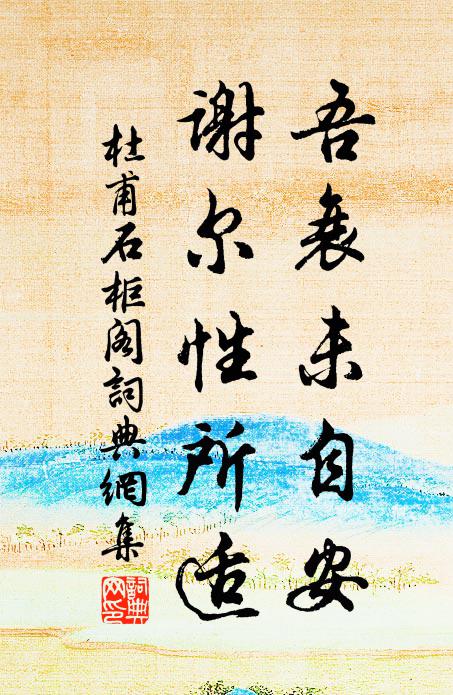 吾衰未自安
谢尔性所适
杜甫石柜阁詞典網集
詞典网印